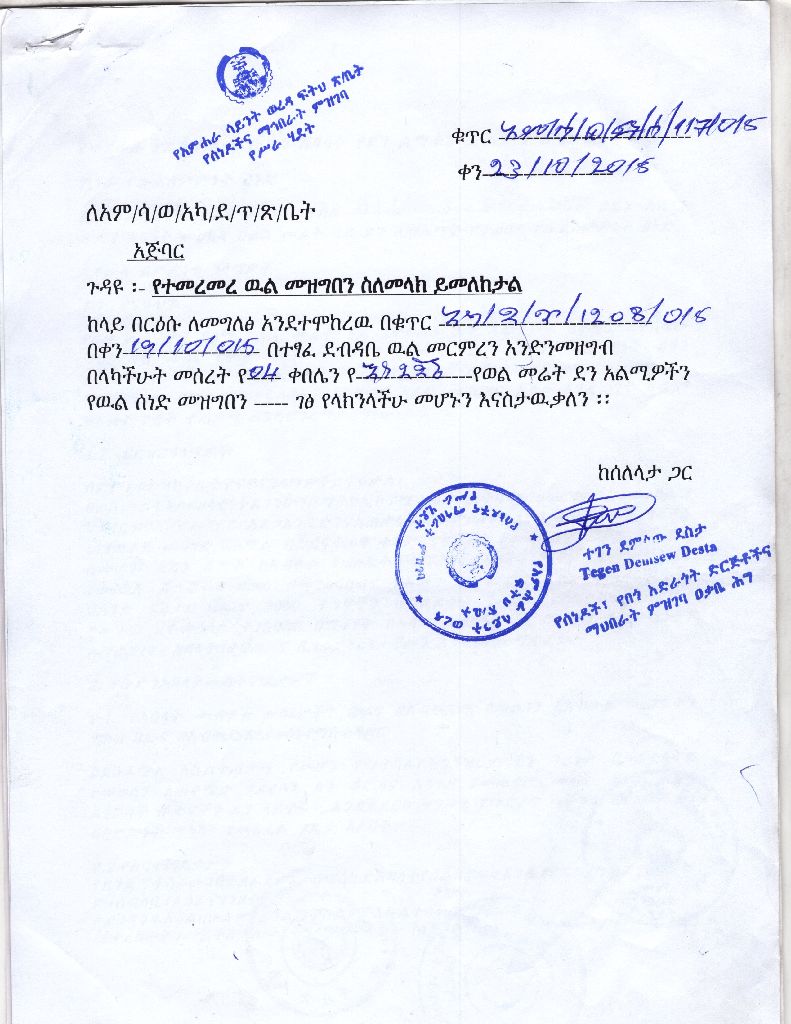 የአምሐራ ሳይንት ወረዳ ፍትህ ጽ/ቤት
የሰነዶችና ማኅበራት ምዝገባ
የሥራ ሂደት
ቁጥር /117/015
ቀን 23/10/2015
ለአም/ሳ/ወ/አካ/ደ/ጥ/ጽ/ቤት
አጅባር
ጉዳዩ ፡- የተመረመረ ዉል መዝግበን ስለመላክ ይመለከታል
ከላይ በርዕሱ ለመግለፅ እንደተሞከረዉ በቁጥር /1208/015
በቀን 19/10/015 በተፃፈ ደብዳቤ ዉል መርምረን እንድንመዘግብ
በላካችሁት መሰረት የ04 ቀበሌን የ የወል መሬት ደን አልሚዎችን
የዉል ሰነድ መዝግበን ----- ገፅ የላክንላችሁ መሆኑን እናስታዉቃለን ፡፡
ከሰለላታ ጋር
ተገን ደምሶው ደስታ
Tegen Demsew Desta
የሰነዶች፣ የበጎ አድራጎት ድርጅቶችና
ማህበራት ምዝገባ ዐቃቤ ሕግ
የአምሐራ ሳይንት ወረዳ
ፍትህ ጽ/ቤት